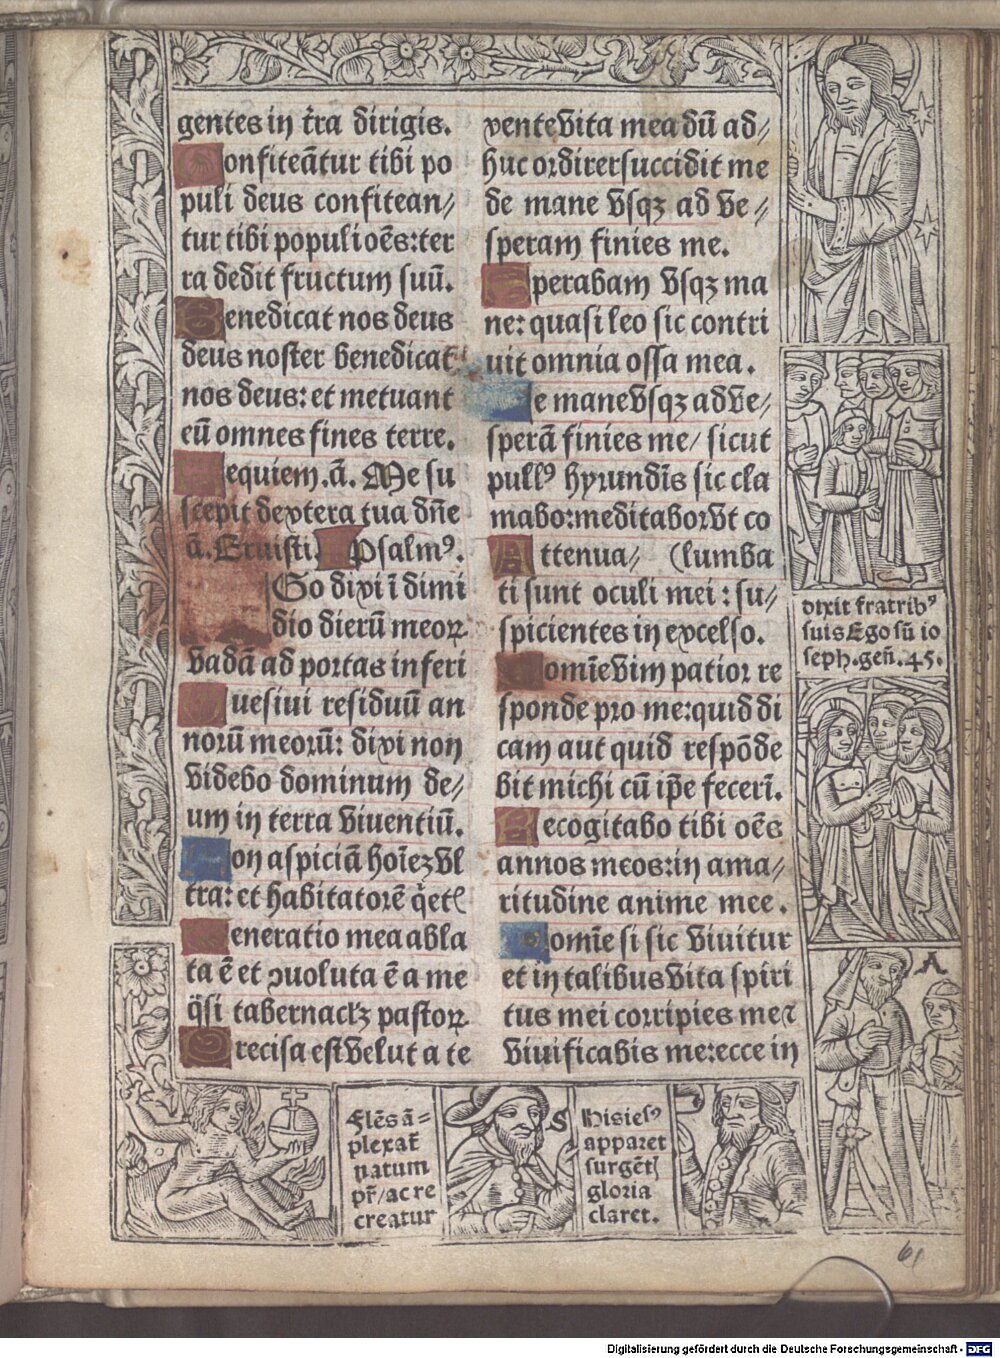 gentes in t̄ra dirigis.
Confiteātur tibi po
puli deus confitean/
tur tibi populi oēs: ter
ra dedit fructum suū.
Benedicat nos deus
deus noster benedicat
nos deus: et metuant
eū omnes fines terre.
Requiem. ā. Me su
scepit dextera tua dn̄e
ā. Eruisti. Psalmꝰ.
EGo dixi ī dimi
dio dierū meoꝝ
vadā ad portas inferi
Quesiui residuū an
norū meorū: dixi non
videbo dominum de/
um in terra viuentiū.
Non aspiciā hoīeꝫ vl
tra: et habitatorē q̄etꝭ
Generatio mea abla
ta ē et ꝯuoluta ē a me
q̄si tabernaclꝫ pastoꝝ
Precisa est velut a te
vente vita mea dū ad/
huc ordirer succidit me
de mane vsqꝫ ad ve/
speram finies me.
Sperabam vsqꝫ ma
ne: quasi leo sic contri
uit omnia ossa mea.
De mane vsqꝫ ad ve/
sperā finies me/ sicut
pullꝰ hyrundīs sic cla
mabo: meditabor vt co
Attenua/ (lumba
ti sunt oculi mei: su/
spicientes in excelso.
Domīe vim patior re
sponde pro me: quid di
cam aut quid respōde
bit michi cū ip̄e fecerī.
Recogitabo tibi oēs
annos meos: in ama/
ritudine anime mee.
Domīe si sic viuitur
et in talibus vita spiri
tus mei corripies me ⁊
viuificabis me: ecce in
dixit fratribꝰ
suis Ego sū io
seph. gen̄. 45.
A
Flēs ā=
plexat᷑
natum
pr̄/ ac re
creatur
S
Hic iesꝰ
apparet
surgētꝭ
gloria
claret.
61
Digitalisierung gefördert durch die Deutsche Forschungsgemeinschaft - DFG